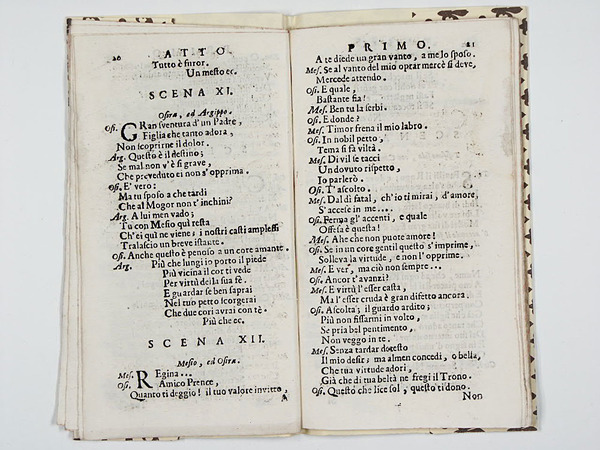 20
ATTO.
Tutto è furor.
Un mesto ec.
SCENA XI.
Osira, ed Argippo.
Osi. GRan sventura d' un Padre,
Figlia che tanto adora,
Non iscoprirne il dolor.
Arg. Questo è il destino;
Se mal non v' è sì grave,
Che preveduto ei non s' opprima.
Osi. E' vero:
Ma tu sposo a che tardi
Che al Mogor non t' inchini?
Arg. A lui men vado;
Tu con Mesio quì resta
Ch' ei quì ne viene; i nostri casti amplessi
Tralascio un breve istante.
Osi. Anche questo è penoso a un core amante.
Arg. Più che lungi io porto il piede
Più vicina il cor ti vede
Per virtù della sua fè.
E guardar se ben saprai
Nel tuo petto scorgerai
Che due cori avrai con tè.
Più che ec.
SCENA XII.
Mesio, ed Osira.
Mes. REgina...
Osi. Amico Prence,
Quanto ti deggio! il tuo valore invitto,
A
PRIMO. 21
A te diede un gran vanto, a me lo sposo.
Mes. Se al vanto del mio oprar mercè si deve,
Mercede attendo.
Osi. E quale,
Bastante fia!
Mes. Ben tu la serbi.
Osi. E donde?
Mes. Timor frena il mio labro.
Osi. In nobil petto,
Tema si fà viltà.
Mes. Di vil se tacci
Un dovuto rispetto,
Io parlerò.
Osi. T' ascolto.
Mes. Dal dì fatal, ch' io ti mirai, d' amore,
S' accese in me....
Osi. Ferma gl' accenti, e quale
Offesa è questa!
Mes. Ah che non puote amore!
Osi. Se in un core gentil questo s' imprime,
Solleva la virtude, e non l' opprime.
Mes. E ver, ma ciò non sempre...
Osi. Ancor t' avanzi?
Mes. E virtù l' esser casta,
Ma l' esser cruda è gran difetto ancora.
Osi. Ascolta; il guardo ardito;
Più non fissarmi in volto,
Se pria bal pentimento,
Non veggo in te.
Mes. Senza tardar detesto
Il mio desir; ma almen concedi, o bella,
Che tua virtude adori,
Già che di tua beltà ne fregi il Trono.
Osi. Questo che lice sol, questo ti dono.
Non